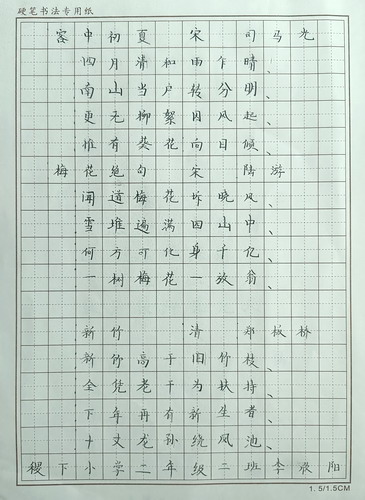 硬笔书法专用纸
客中初夏 宋 司马光
四月清和雨乍晴、
南山当户转分明、
更无柳絮因风起、
惟有葵花向日倾、
梅花绝句 宋 陆游
闻道梅花坼晓风、
雪堆遍满四山中、
何方可化身千亿、
一树梅花一放翁、
新竹 清 郑板桥
新竹高于旧竹枝、
全凭老干为扶持、
下年再有新生者、
十丈龙孙绕凤池、
稷下小学二年级二班李宸阳
1.5/1.5CM